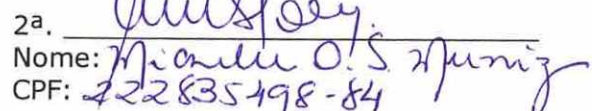 2ª.
Nome: Michelle O. S. Muniz
CPF: 222835498-84